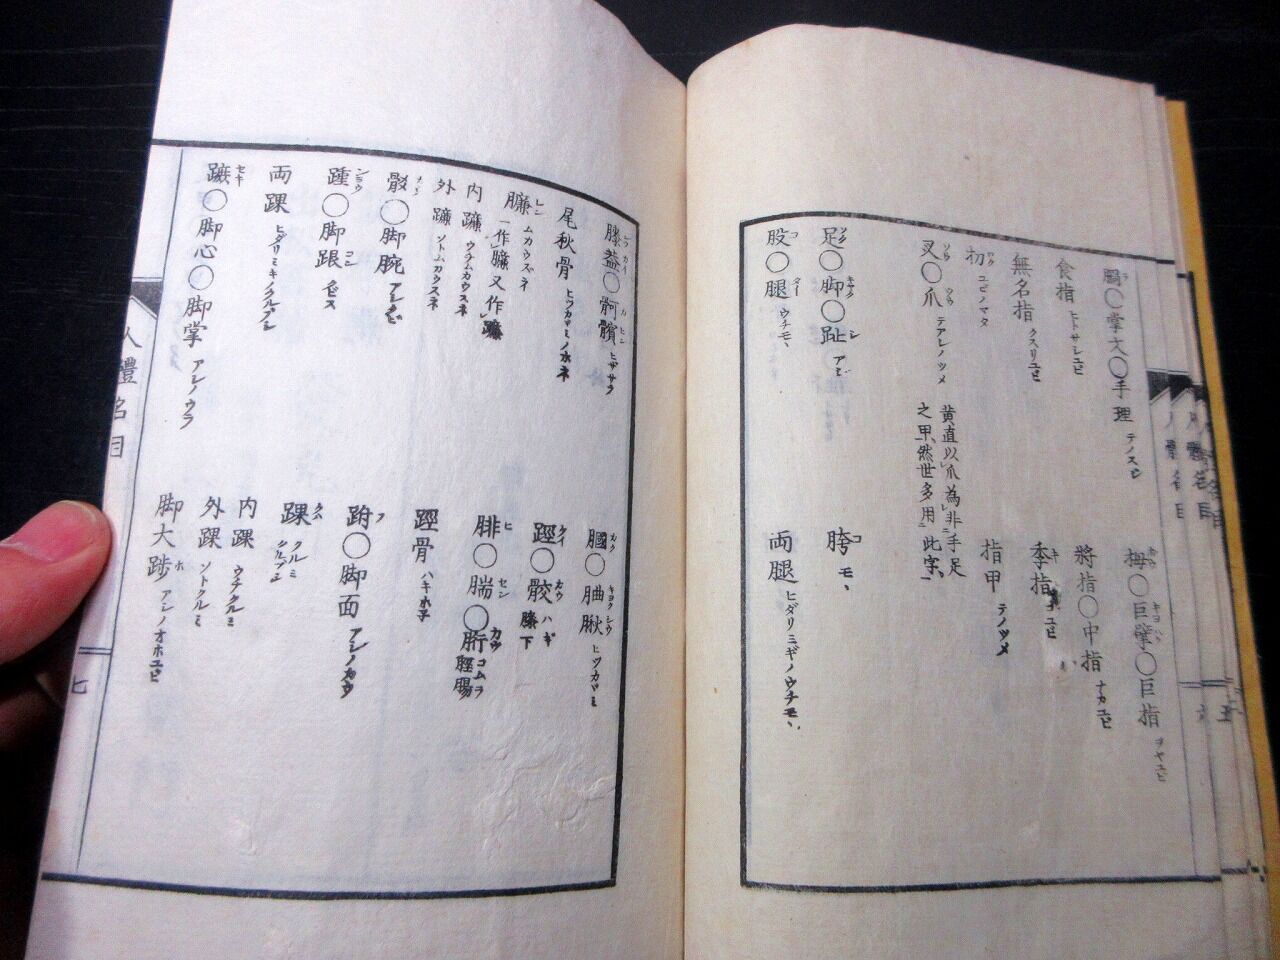 掌文〇手理 テノスヂ
拇〇巨擘〇巨指 ヲヤユビ
食指 ヒトサシユビ
將指〇中指 ナカユビ
無名指 クスリユビ
季指 コユビ
ユビノマタ
指甲 テノツメ
叉〇爪 テアシノツメ 黄直以爪為非手足之甲、然世多用此字、
足〇脚〇趾 アシ
胯 モヽ
股〇腿 ウチモヽ
両腿 ヒダリミギノウチモヽ
膝蓋〇 ヒザサラ
膕〇 ヒツカヾミ
尾秋骨 ヒツカヾミノホネ
脛〇骹 ハギ 膝下
臁 ムカウズネ 一作臁又作
腓〇腨〇䯒 コムラ 脛腸
内臁 ウチムカウズネ
外臁 ソトムカウズネ
脛骨 ハギホ子
骰〇脚腕 アシクビ
跗〇脚面 アシノカウ
踵〇脚跟 キビス
踝 クルミ クルブシ
両踝 ヒダリミキノクルブシ
内踝 ウチクルミ
外踝 ソトクルミ
蹠〇脚心〇脚掌 アシノウラ
脚大踄 アシノオホユビ
人體名目
七